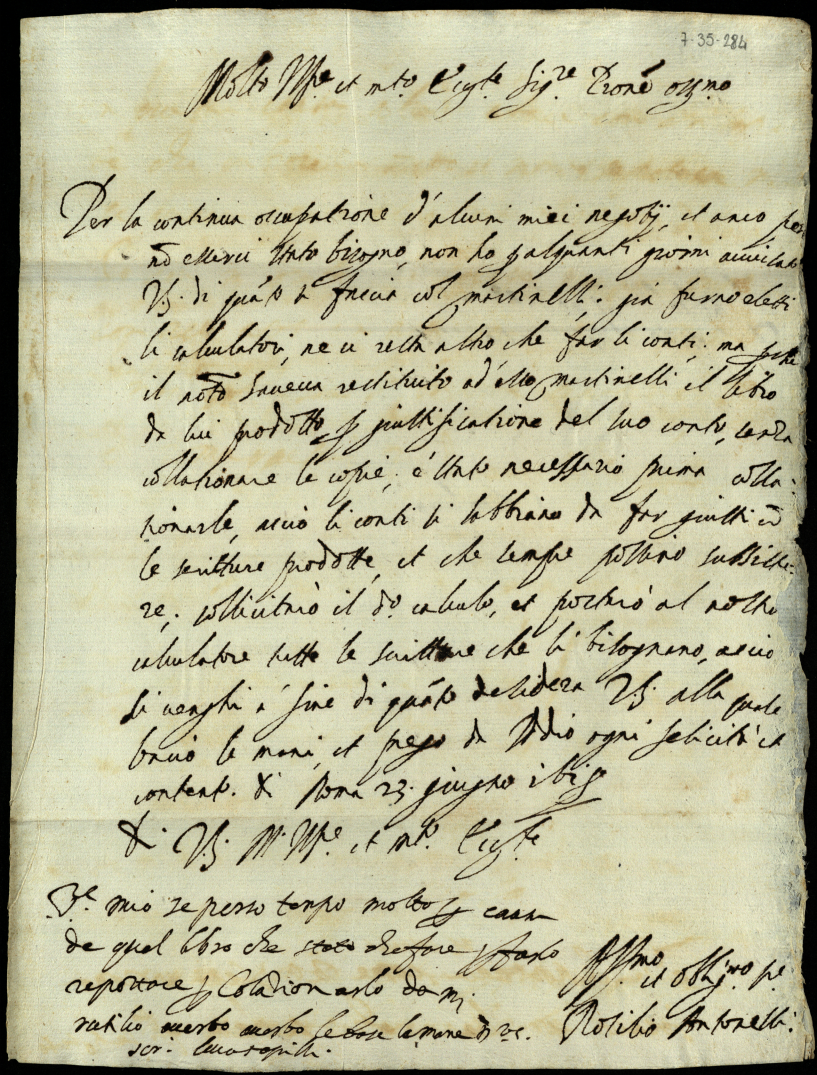 7-35-284
Molto Ill.re et m.to Ecc.te Sig.re Pron̄e oss.mo
Per la continua occupatione d'alcuni miei negotij, et anco per
nō esserci stato bisogno, non ho p alquanti giorni avvisato
VS. di quāto si faccia col Martinelli: già furno eletti
li calculatori, ne ci resta altro che far li conti: ma perche
il notō haveva restituito ad esso Martinelli il libro
da lui prodotto p giustificatione del suo conto, senza
collationare le copie, è stato necessario prima colla-
tionarle, acciò li conti si habbiano da far giusti cō
le scritture prodotte, et che sempre possino sussiste-
re; sollicitarò il d.o calculo, et portarò al nostro
calculatore tutte le scritture che li bisognano, acciò
si venghi à fine di quāto desidera VS. alla quale
bacio le mani, et prego da Iddio ogni felicità et
contento. Di Roma 23. giugno
Di VS. M. Ill.re et m.to Ecc.te
mio se perso tempo molto p causa
de quel libro che stato farlo
reportare p Colationarlo da m.
rutilio le mane
Aff.mo et Obl.mo se.
Rutilio Antonelli.